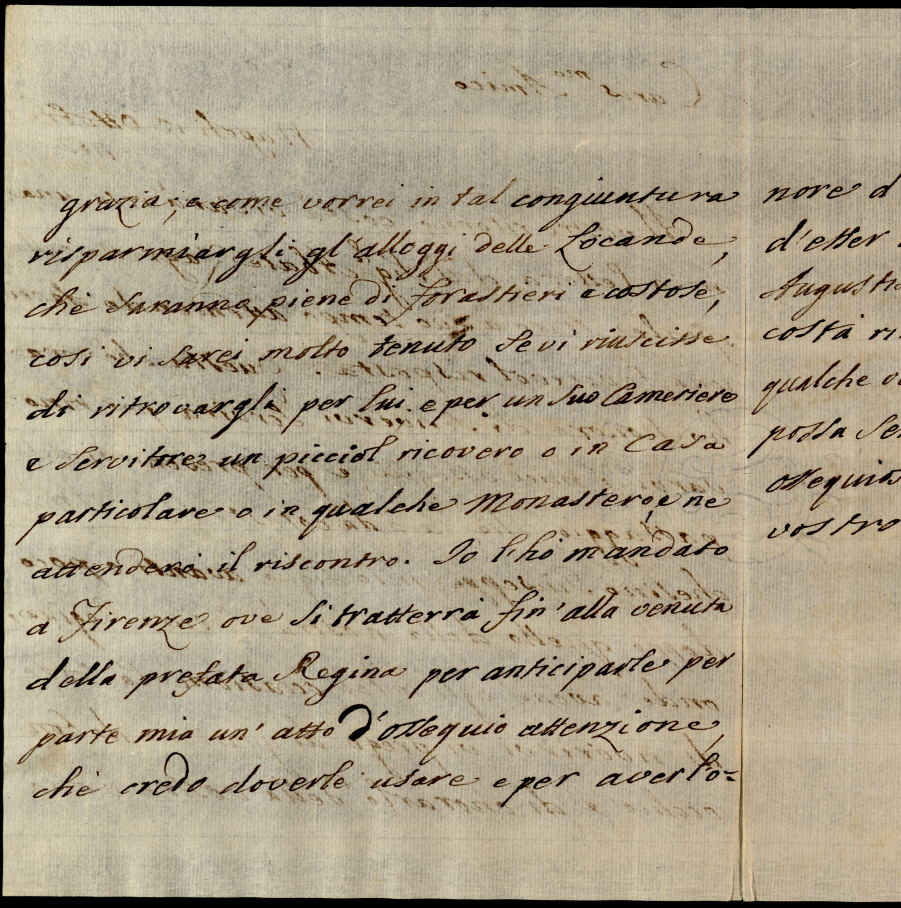 grazia, e come vorrei in tal congiuntura
risparmiargli gl'alloggi delle Locande,
chè saranno piene di forastieri e costose,
così vi sarei molto tenuto se vi riuscisse
di ritrovargli per lui e per un suo Cameriere
e Servitore un picciol ricovero o in Casa
particolare o in qualche Monastero, e ne
attenderò il riscontro. Io l'ho mandato
a Firenze ove si tratterrà fin'alla venuta
della prefata Regina per anticiparle per
parte mia un'atto d'ossequio attenzione,
chè credo doverle usare e per aver l'o=
nore d
d'esser
Augusti
costà ri
qualche
possa se
ossequio
vostro